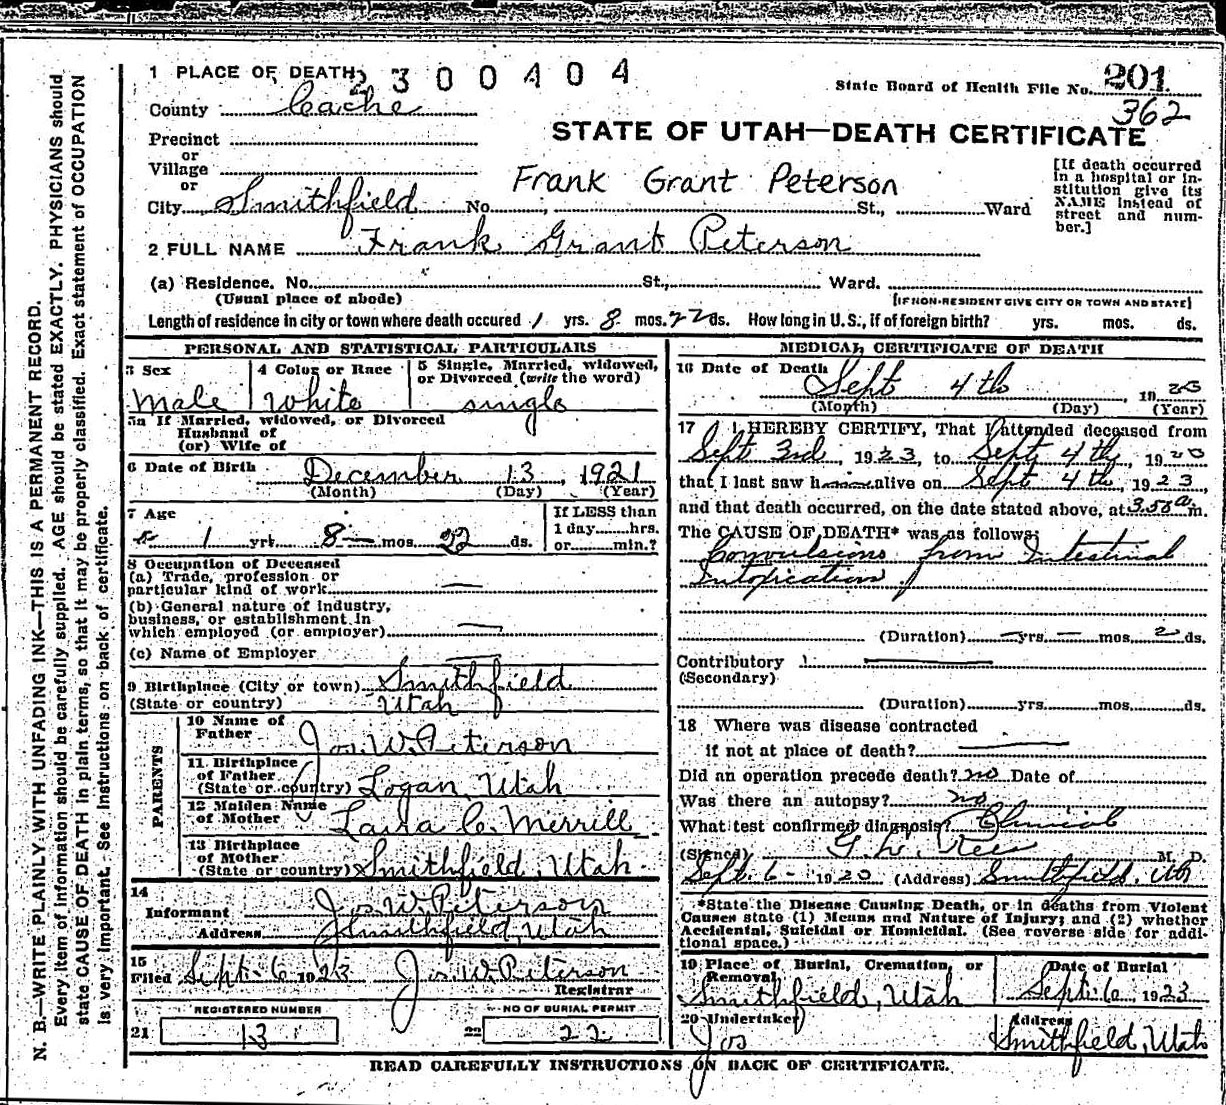 1 PLACE OF DEATH 2300404
State Board of Health File No. 201
362
County Cache
STATE OF UTAH—DEATH CERTIFICATE
Precinct
or
Village
or
City Smithfield No. St., Ward
Frank Grant Peterson
[If death occurred
in a hospital or in-
stitution give its
NAME instead of
street and num-
ber.]
2 FULL NAME Frank Grant Peterson
(a) Residence. No. St., Ward.
(Usual place of abode) [IF NON-RESIDENT GIVE CITY OR TOWN AND STATE]
Length of residence in city or town where death occured 1 yrs. 8 mos. 22 ds. How long in U. S., if of foreign birth? yrs. mos. ds.
PERSONAL AND STATISTICAL PARTICULARS
3 Sex
Male
4 Color or Race
White
5 Single, Married, widowed,
or Divorced (write the word)
single
5a If Married, widowed, or Divorced
Husband of
(or) Wife of
6 Date of Birth December 13, 1921
(Month) (Day) (Year)
7 Age
1 yrs. 8 mos. 22 ds.
If LESS than
1 day hrs.
or min.?
8 Occupation of Deceased
(a) Trade, profession or
particular kind of work —
(b) General nature of industry,
business, or establishment in
which employed (or employer) —
(c) Name of Employer
9 Birthplace (City or town) Smithfield
(State or country) Utah
PARENTS
10 Name of
Father Jos. W. Peterson
11 Birthplace
of Father
(State or country) Logan, Utah
12 Maiden Name
of Mother Laura C. Merrill
13 Birthplace
of Mother
(State or country) Smithfield, Utah
14
Informant Jos. W. Peterson
Address Smithfield, Utah
15
Filed Sept. 6 1923 Jos. W. Peterson
Registrar
REGISTERED NUMBER
21 13
NO OF BURIAL PERMIT
22 22
MEDICAL CERTIFICATE OF DEATH
16 Date of Death
Sept 4th, 1923
(Month) (Day) (Year)
17 I HEREBY CERTIFY, That I attended deceased from
Sept 3rd, 1923, to Sept 4th, 1923
that I last saw h alive on Sept 4th, 1923,
and that death occurred, on the date stated above, at 3.50 a m.
The CAUSE OF DEATH* was as follows:
Convulsions from Intestinal
Intoxication
(Duration) — yrs. — mos. 2 ds.
Contributory
(Secondary)
(Duration) yrs. mos. ds.
18 Where was disease contracted
if not at place of death?
Did an operation precede death? no Date of
Was there an autopsy? no
What test confirmed diagnosis? Clinical
(Signed) G. L. Rees M. D.
Sept. 6 - 1923 (Address) Smithfield, Ut
*State the Disease Causing Death, or in deaths from Violent
Causes state (1) Means and Nature of Injury; and (2) whether
Accidental, Suicidal or Homicidal. (See reverse side for addi-
tional space.)
19 Place of Burial, Cremation, or
Removal
Smithfield, Utah
Date of Burial
Sept. 6, 1923
20 Undertaker
Jos
Address
Smithfield, Utah
READ CAREFULLY INSTRUCTIONS ON BACK OF CERTIFICATE.
N. B.—WRITE PLAINLY WITH UNFADING INK—THIS IS A PERMANENT RECORD.
Every item of information should be carefully supplied. AGE should be stated EXACTLY. PHYSICIANS should
state CAUSE OF DEATH in plain terms, so that it may be properly classified. Exact statement of OCCUPATION
is very important. See instructions on back of certificate.